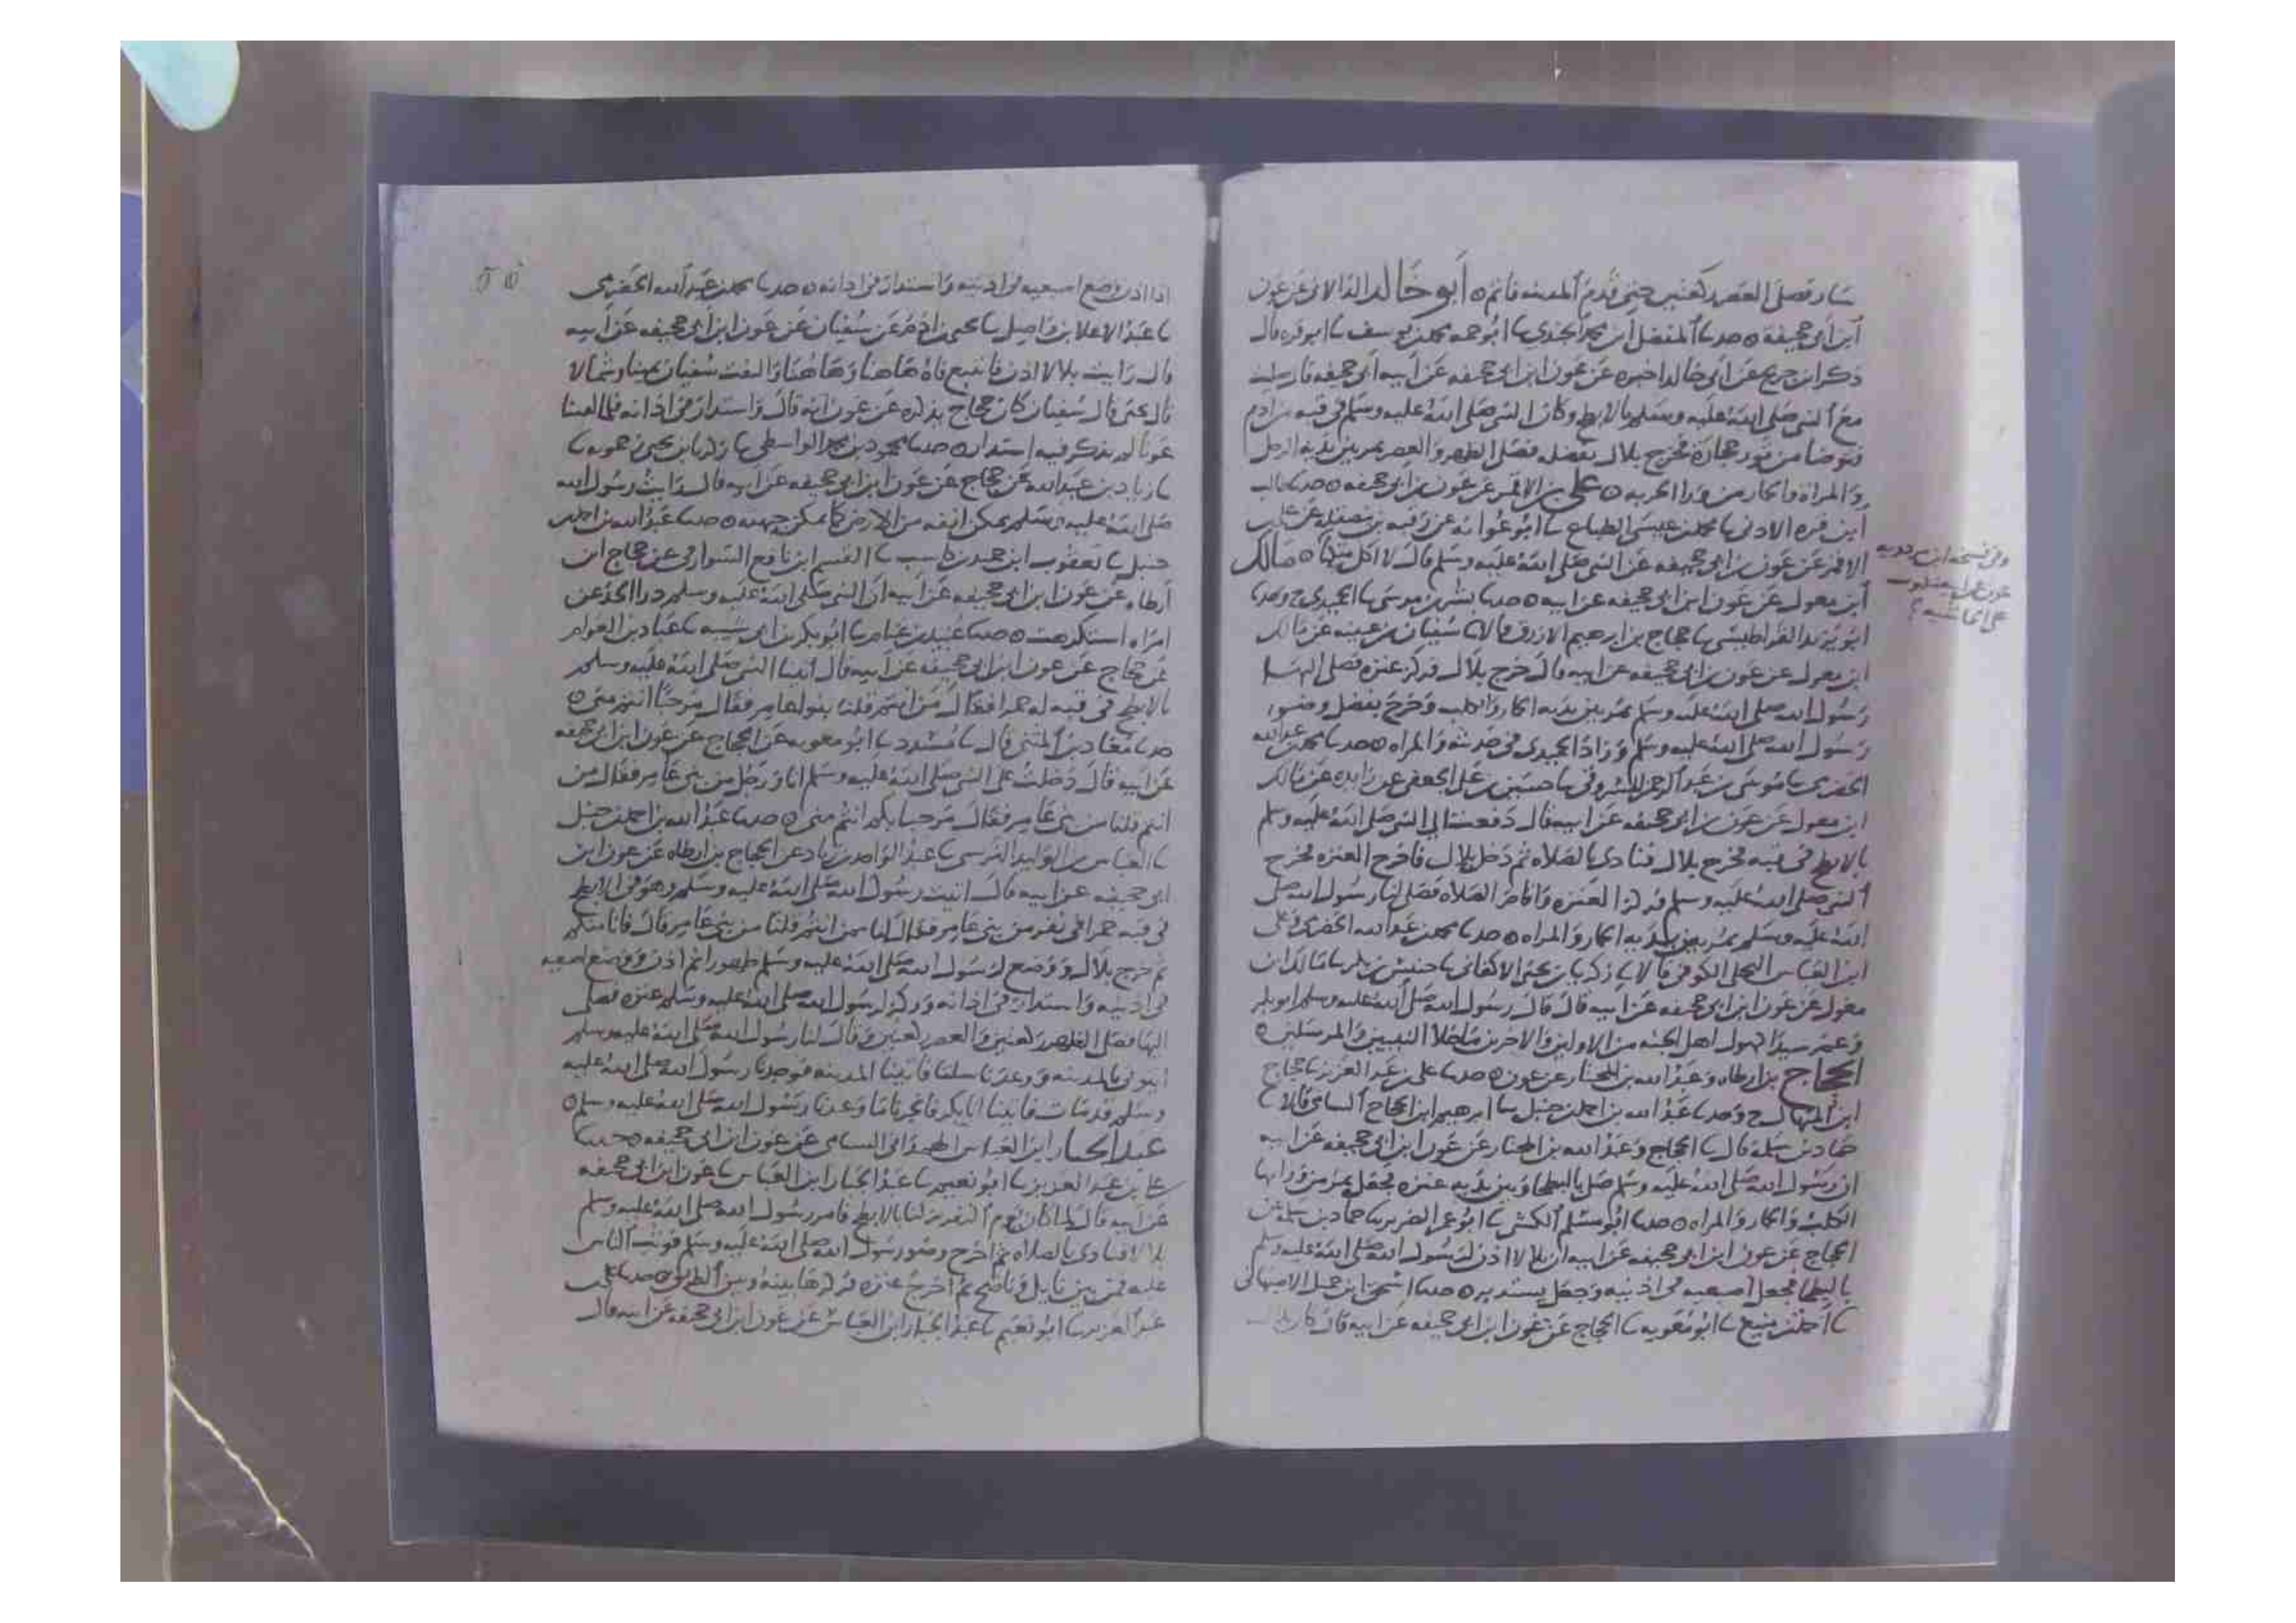 سار فصلى العصر ركعتين حتى قدم المدينه فاتم ه أبو خالد الدالانى عن عون
ابن ابى جحيفة ه حدثنا المفضل ابن محمد الجندى نا ابو حمه محمد بن يوسف نا ابو قره قال
ذكر ابن جريج عن ابى خالد اخبره عن عون ابن ابى جحيفه عن ابيه ابى جحيفه قال
مع النبى صلى الله عليه وسلم بالابطح وكان النبى صلى الله عليه وسلم فى قبه من ادم
فتوضا من تور حجارة فخرج بلال بفضله فصلى الظهر والعصر يمر بين يديه الرجل
والمراة والحمار من ورا الحربه ه على بن الاقمر عن عون بن ابى جحيفه ه حدثنا
ابن قره الادنى نا محمد بن عيسى الطباع نا ابو عوانه عن رقبه بن مصقله عن على بن
الاقمر عن عون بن ابى جحيفه عن النبى صلى الله عليه وسلم قال لا اكل متكئا ه مالك
ابن مغول عن عون ابن ابى جحيفه عن ابيه ه حدثنا بشر بن موسى نا الحميدى ح وحدثنا
ابو يزيد القراطيسى نا حجاج بن ابرهيم الازرق قالا نا سفيان بن عيينه عن مالك
ابن مغول عن عون بن ابى جحيفه عن ابيه قال خرج بلال فركز عنزه فصلى اليها
رسول الله صلى الله عليه وسلم يمر بين يديه الحمار والكلب وخرج بفضل وضو
رسول الله صلى الله عليه وسلم وزاد الحميدى فى حديثه والمراه ه حدثنا محمد بن عبد الله
الحضرمى نا موسى بن عبد الرحمن المسروقى نا حسين بن على الجعفى عن زايده عن مالك
ابن مغول عن عون بن ابى جحيفه عن ابيه قال دفعت الى النبى صلى الله عليه وسلم
بالابطح فى قبه فخرج بلال فنادى بالصلاه ثم دخل بلال فاخرج العنزه فخرج
النبى صلى الله عليه وسلم فركز العنزه واقام الصلاه فصلى لنا رسول الله صلى
الله عليه وسلم يمر بين يديه الحمار والمراه ه حدثنا محمد بن عبد الله الحضرمى وعلى
ابن العباس البجلى الكوفى قالا نا زكريا بن يحيى الاكفانى نا خنيس بن بكر نا مالك ابن
مغول عن عون ابن ابى جحيفه عن ابيه قال قال رسول الله صلى الله عليه وسلم ابو بكر
وعمر سيدا كهول اهل الجنه من الاولين والاخرين ما خلا النبيين والمرسلين ه
الحجاج بن ارطاه وعبد الله بن المختار عن عون ه حدثنا على بن عبد العزيز نا حجاج
ابن المنهال ح وحدثنا عبد الله بن احمد بن حنبل نا ابرهيم ابن الحجاج السامى قالا نا
حماد بن سلمة قال نا الحجاج وعبد الله بن المختار عن عون ابن ابى جحيفه عن ابيه
ان رسول الله صلى الله عليه وسلم صلى بالبطحا وبين يديه عنزه فجعل يمر من ورايها
الكلب والحمار والمراه ه حدثنا ابو مسلم الكشى نا ابو عمر الضرير نا حماد بن سلمه عن
الحجاج عن عون ابن ابى جحيفه عن ابيه ان بلالا اذن لرسول الله صلى الله عليه وسلم
بالبطحا فجعل اصبعيه فى اذنيه وجعل يستدير ه حدثنا اسحق ابن جميل الاصبهانى
نا احمد بن منيع نا ابو معويه نا الحجاج عن عون ابن ابى جحيفه عن ابيه قال كان بلال
وفى نسخه ابن
على الحاشيه
اذا اذن وضع اصبعيه فى اذنيه واستدار فى اذانه ه حدثنا محمد بن عبد الله الحضرمى
نا عبد الاعلا بن واصل نا يحيى بن ادم عن سفيان عن عون ابن ابى جحيفه عن ابيه
قال رايت بلالا اذن فاتتبع فاه هاهنا وهاهنا والتفت سفيان يمينا وشمالا
قال يحيى قال سفيان كان حجاج يذكره عن عون انه قال واستدار فى اذانه فلما لقينا
عونا لم يذكر فيه استدار ه حدثنا محمود بن محمد الواسطى نا زكريا بن يحيى زحمويه نا
زياد بن عبد الله عن حجاج عن عون ابن ابى جحيفه عن ابيه قال رايت رسول الله
صلى الله عليه وسلم يمكن انفه من الارض كما يمكن جبهته ه حدثنا عبد الله بن احمد بن
حنبل نا يعقوب ابن حميد بن كاسب نا القسم ابن نافع السوارقى عن حجاج ابن
ارطاه عن عون ابن ابى جحيفه عن ابيه ان النبى صلى الله عليه وسلم درا الحد عن
امراه استكرهت ه حدثنا عبيد بن غنام نا ابو بكر بن ابى شيبه نا عباد بن العوام
عن حجاج عن عون ابن ابى جحيفه عن ابيه قال اتينا النبى صلى الله عليه وسلم
بالابطح فى قبه له حمرا فقال من انتم قلنا بنوا عامر فقال مرحبا انتم منى ه
حدثنا معاذ بن المثنى قال نا مسدد نا ابو معويه عن الحجاج عن عون ابن ابى جحيفه
عن ابيه قال دخلت على النبى صلى الله عليه وسلم انا ورجل من بنى عامر فقال من
انتم قلنا من بنى عامر فقال مرحبا بكم انتم منى ه حدثنا عبد الله بن احمد بن حنبل
نا العباس بن الوليد النرسى نا عبد الواحد بن زياد عن الحجاج بن ارطاه عن عون ابن
ابى جحيفه عن ابيه قال اتيت رسول الله صلى الله عليه وسلم وهو فى الابطح
فى قبه حمرا فى نفر من بنى عامر فقال لنا من انتم قلنا من بنى عامر قال فانا منكم
ثم خرج بلال ووضع لرسول الله صلى الله عليه وسلم طهورا ثم اذن ووضع اصبعيه
فى اذنيه واستدار فى اذانه وركز لرسول الله صلى الله عليه وسلم عنزه فصلى
اليها فصلى الظهر ركعتين والعصر ركعتين وقال لنا رسول الله صلى الله عليه وسلم
ايتونى بالمدينه ووعدنا سلتا فاتينا المدينه فوجدنا رسول الله صلى الله عليه
وسلم قد مات فاتينا ابا بكر فانجز لنا ما وعدنا رسول الله صلى الله عليه وسلم ه
عبد الجبار ابن العباس الهمدانى الشامى عن عون ابن ابى جحيفه ه حدثنا
على بن عبد العزيز نا ابو نعيم نا عبد الجبار ابن العباس نا عون ابن ابى جحيفه
عن ابيه قال لما كان يوم النفر نزلنا بالابطح فامر رسول الله صلى الله عليه وسلم
بلالا فنادى بالصلاه ثم اخرج وضو رسول الله صلى الله عليه وسلم فوثب الناس
عليه فمن بين نايل وناضح ثم اخرج عنزه فركزها بينه وبين الطريق ه حدثنا على بن
عبد العزيز نا ابو نعيم نا عبد الجبار ابن العباس عن عون ابن ابى جحيفه عن ابيه قال